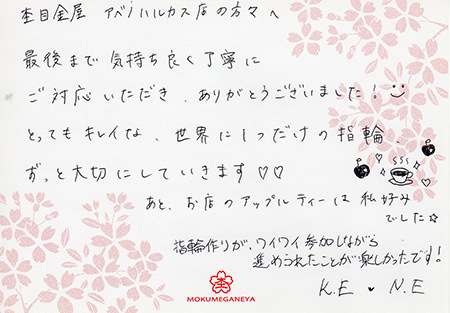 杢目金屋 アベノハルカス店の方々へ
最後まで気持ち良く丁寧に
ご対応いただき、ありがとうございました!
とってもキレイな、世界に1つだけの指輪、
ずっと大切にしていきます♡♡
あと、お店のアップルティーは私好み
でした☆
指輪作りが、ワイワイ参加しながら
進められたことが楽しかったです!
K.E ♥ N.E
MOKUMEGANEYA